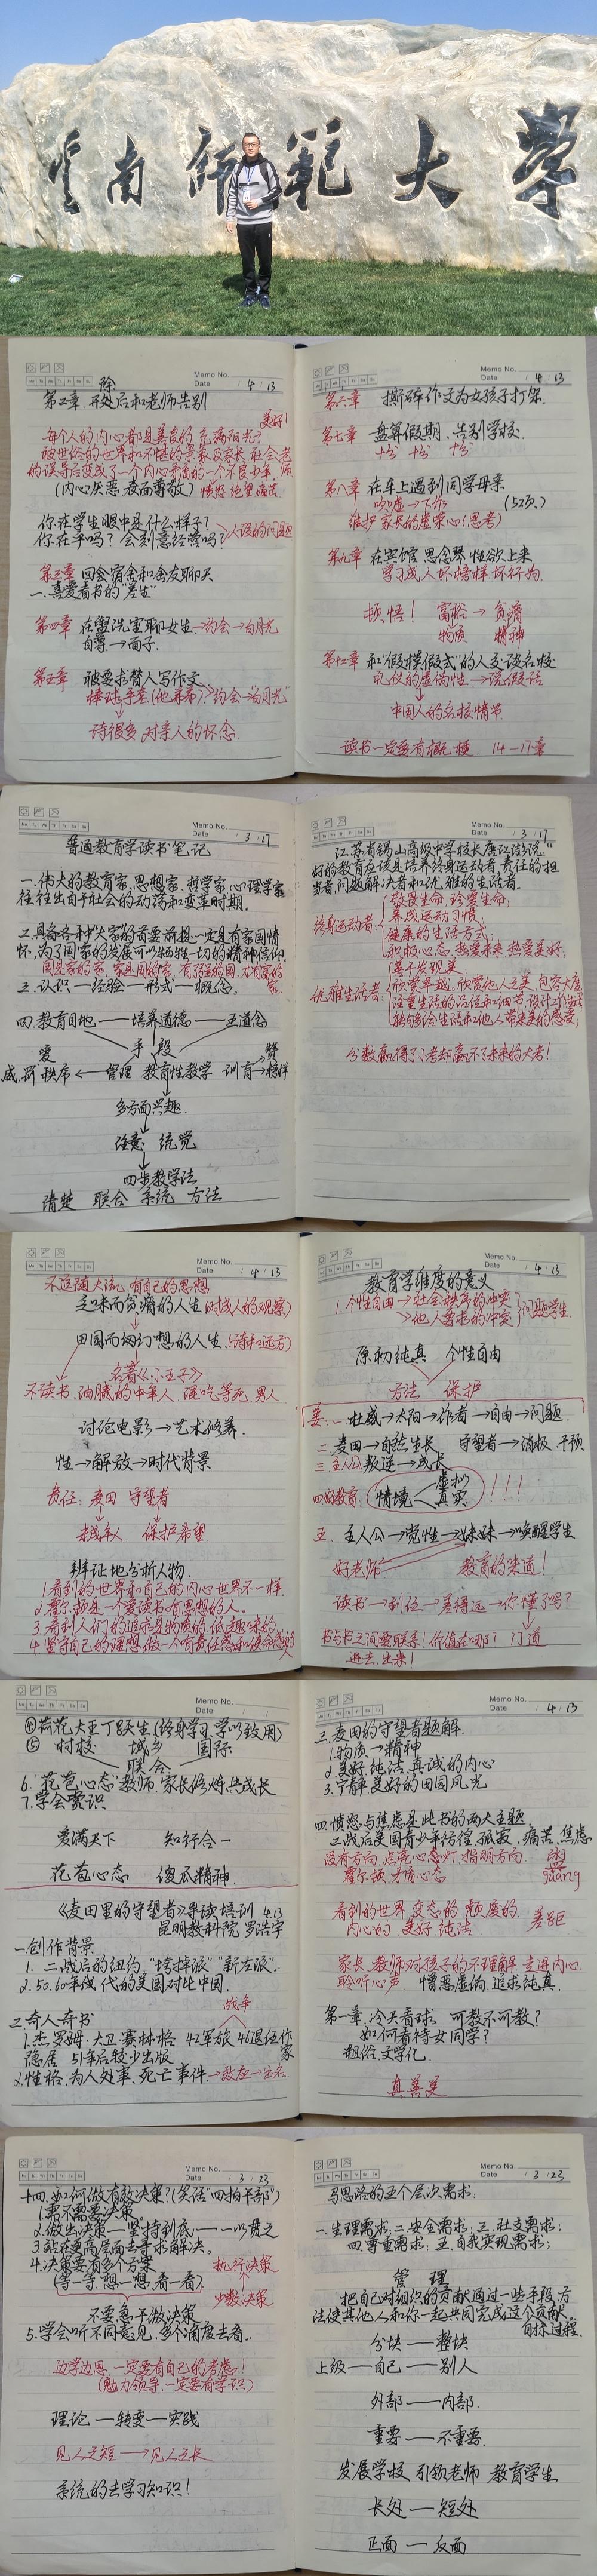 雲南师范大学
Memo No.
Mo Tu We Th Fr Sa Su
Date / 4 / 13
除
第二章 再处后和老师告别
美好!
每个人的内心都是善良的 充满阳光?
被世俗的世界和不堪的亲家及家长 社会 老师
的误导后变成了一个内心矛盾的一个不良少年
(内心厌恶.表面尊敬) 愤怒 绝望 痛苦
你在学生眼中是什么样子?
你在乎吗? 会刻意经营吗? 人设的问题
第三章 回会宿舍和舍友聊天
一.喜爱看书的"差生"
第四章 在盥洗室聊女生→约会→白月光
自尊→面子.
第五章 被要求替人写作文
棒球手套(他弟弟)→约会→白月光
诗很多 对亲人的怀念.
Memo No.
Mo Tu We Th Fr Sa Su
Date / 4 / 13
第六章 撕碎作文为女孩子打架.
第七章 盘算假期.告别学校.
十分 十分 十分
第八章 在车上遇到同学母亲
吹嘘→下作 (52页)
维护家长的虚荣心(思考)
第九章 在宾馆 思念琴 性欲上来
学习成人坏榜样 坏行为.
顿悟! 富裕→贫瘠
物质 精神
第十章 和"假模假式"的人交谈名校
礼仪的虚伪性→说假话
中国人的名校情节.
读书一定要有概 14—17章
Memo No.
Mo Tu We Th Fr Sa Su
Date / 3 / 17
普通教育学读书笔记
一.伟大的教育家.思想家.哲学家.心理学家
往往出自于社会的动荡和变革时期.
二.具备各种"大家"的首要前提一定是有家国情
怀.为了国家的发展可以牺牲一切的精神信仰.
国是家的家.家是国的家.有强的国.才有富的家.
三.认识—经验—形式—概念.
四.教育目地——培养道德——五道念
爱 手段
威.罚 秩序←管理 教育性教学 训育→榜样
多方面兴趣.
注意 统觉
四步教学法
清楚 联合 系统 方法
Memo No.
Mo Tu We Th Fr Sa Su
Date / 3 / 17
江苏省锡山高级中学校长唐江澎说:"
好的教育应该是培养终身运动者,责任的担
当者,问题解决者和优雅的生活者.
终身运动者:
敬畏生命,珍爱生命;
养成运动习惯;
健康的生活方式;
积极心态.热爱未来.热爱美好;
优雅生活者:
善于发现美;
欣赏卓越,欣赏他人之美,包容大度
注重生活的品位和细节.设计工作生活
能够给生活和他人带来美的感受;
分数赢得了小考却赢不了未来的大考!
Memo No.
Mo Tu We Th Fr Sa Su
Date / 4 / 13
不追随大流.有自己的思想
乏味而贫瘠的人生(对成人的观察)
田园而纲幻想的人生.(诗和远方)
名著《小王子》
不读书.油腻的中年人 混吃等死.男人
讨论电影→艺术修养.
性→解放→时代背景
责任: 麦田 守望者
未成年人. 保护希望
辨证地分析人物.
1.看到的世界和自己的内心世界不一样.
2.霍尔顿是一个爱读书.有思想的人.
3.看到人们的追求是物质的.低趣味的.
4.坚守自己的理想.做一个有责任感和使命感的人
Memo No.
Mo Tu We Th Fr Sa Su
Date / 4 / 13
教育学维度的意义
1.个性自由→社会秩序的冲突
→他人要求的冲突 问题学生.
原初纯真 个性自由
方法 保护
一 杜威→太阳→作者→自由→问题.
二 麦田→自然生长 守望者→消极.干预
三 主人公叛逆→成长
四 好教育: 情境 虚拟 真实 !!!
五. 主人公→党性→妹妹→唤醒学生
好老师 教育的味道!
读书→到位→差得远→你懂了吗?
书与书之间要联系!价值在哪? 门道
进去.出来!
Memo No.
Mo Tu We Th Fr Sa Su
Date / /
④荷花大王丁跃生(终身学习.学以致用)
⑤ 时校 城乡 国际
联合
6."花苞心态"教师.家长修炼.共成长
7.学会赏识
爱满天下 知行合一
花苞心态 傻瓜精神
《麦田里的守望者》导读培训 4.13
昆明教科院 罗浩宇
一.创作背景
1.二战后的纽约."垮掉派""新左派".
2.50.60年代 代的美国对比中国.
战争
二.奇人奇书
1.杰罗姆·大卫·赛林格 42军旅 46退伍作家
隐居 51年后较少出版
2.性格.为人处事.死亡事件→效应→出名.
Memo No.
Mo Tu We Th Fr Sa Su
Date / 4 / 13
三.麦田的守望者题解.
1.物质→精神
2.美好.纯洁.真诚的内心
3.宁静.美好的田园风光
四.愤怒与焦虑是此书的两大主题.
二战后美国青少年彷徨.孤寂.痛苦.焦虑
没有方向.点亮心态灯.指明方向.
霍尔顿.矛盾心态 guang
看到的世界.变态的.颓废的.
内心的.美好.纯洁. 差距
家长.教师对孩子的不理解 走进内心.
聆听心声. 憎恶虚伪.追求纯真.
第一章.冷天看球 可教不可教?
如何看待女同学?
粗俗.文学化.
真善美
Memo No.
Mo Tu We Th Fr Sa Su
Date / 3 / 23
十四.如何做有效决策?(笑话"四拍干部")
1.需不需要决策.
2.做出决策—坚持到底——以贯之
3.站在更高层面去寻求解决.
4.决策要有多个方案 执行决策
(等一等.想一想.看一看) 少数决策
不要急于做决策
5.学会听不同意见,多个角度去看.
边学边思.一定要有自己的考虑!
(魅力领导.一定要有学识)
理论—转变—实践
见人之短→见人之长
系统的去学习知识!
Memo No.
Mo Tu We Th Fr Sa Su
Date / 3 / 23
马思洛的五个层次需求.
一.生理需求;二.安全需求;三.社交需求;
四.尊重需求;五.自我实现需求;
管 理
把自己对组织的贡献通过一些手段.方
法使其他人和你一起共同完成这个贡献.
目标过程.
分块——整块
上级——自己——别人
外部——内部.
重要——不重要.
发展学校 引领老师 教育学生
长处——短处
正面——反面